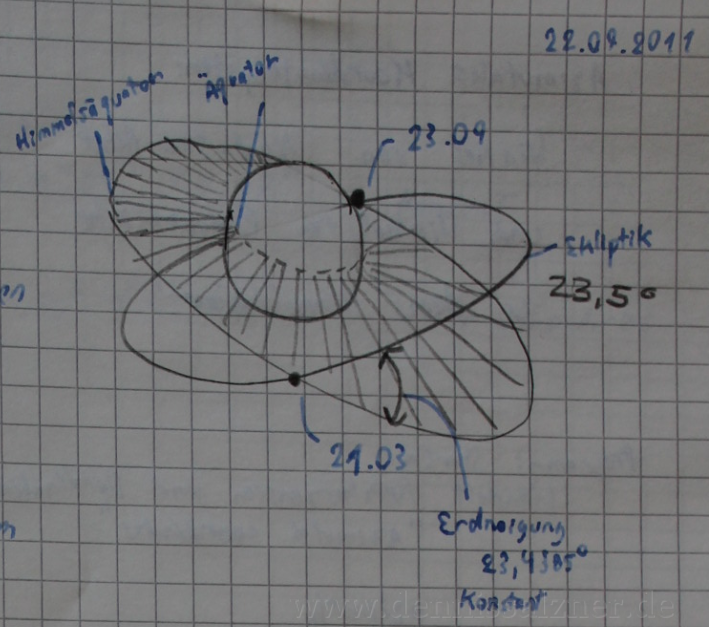 22.09.2011
Himmelsäquator
Äquator
23.09
Ekliptik
23,5°
21.03
Erdneigung
23,4385°
Konstant